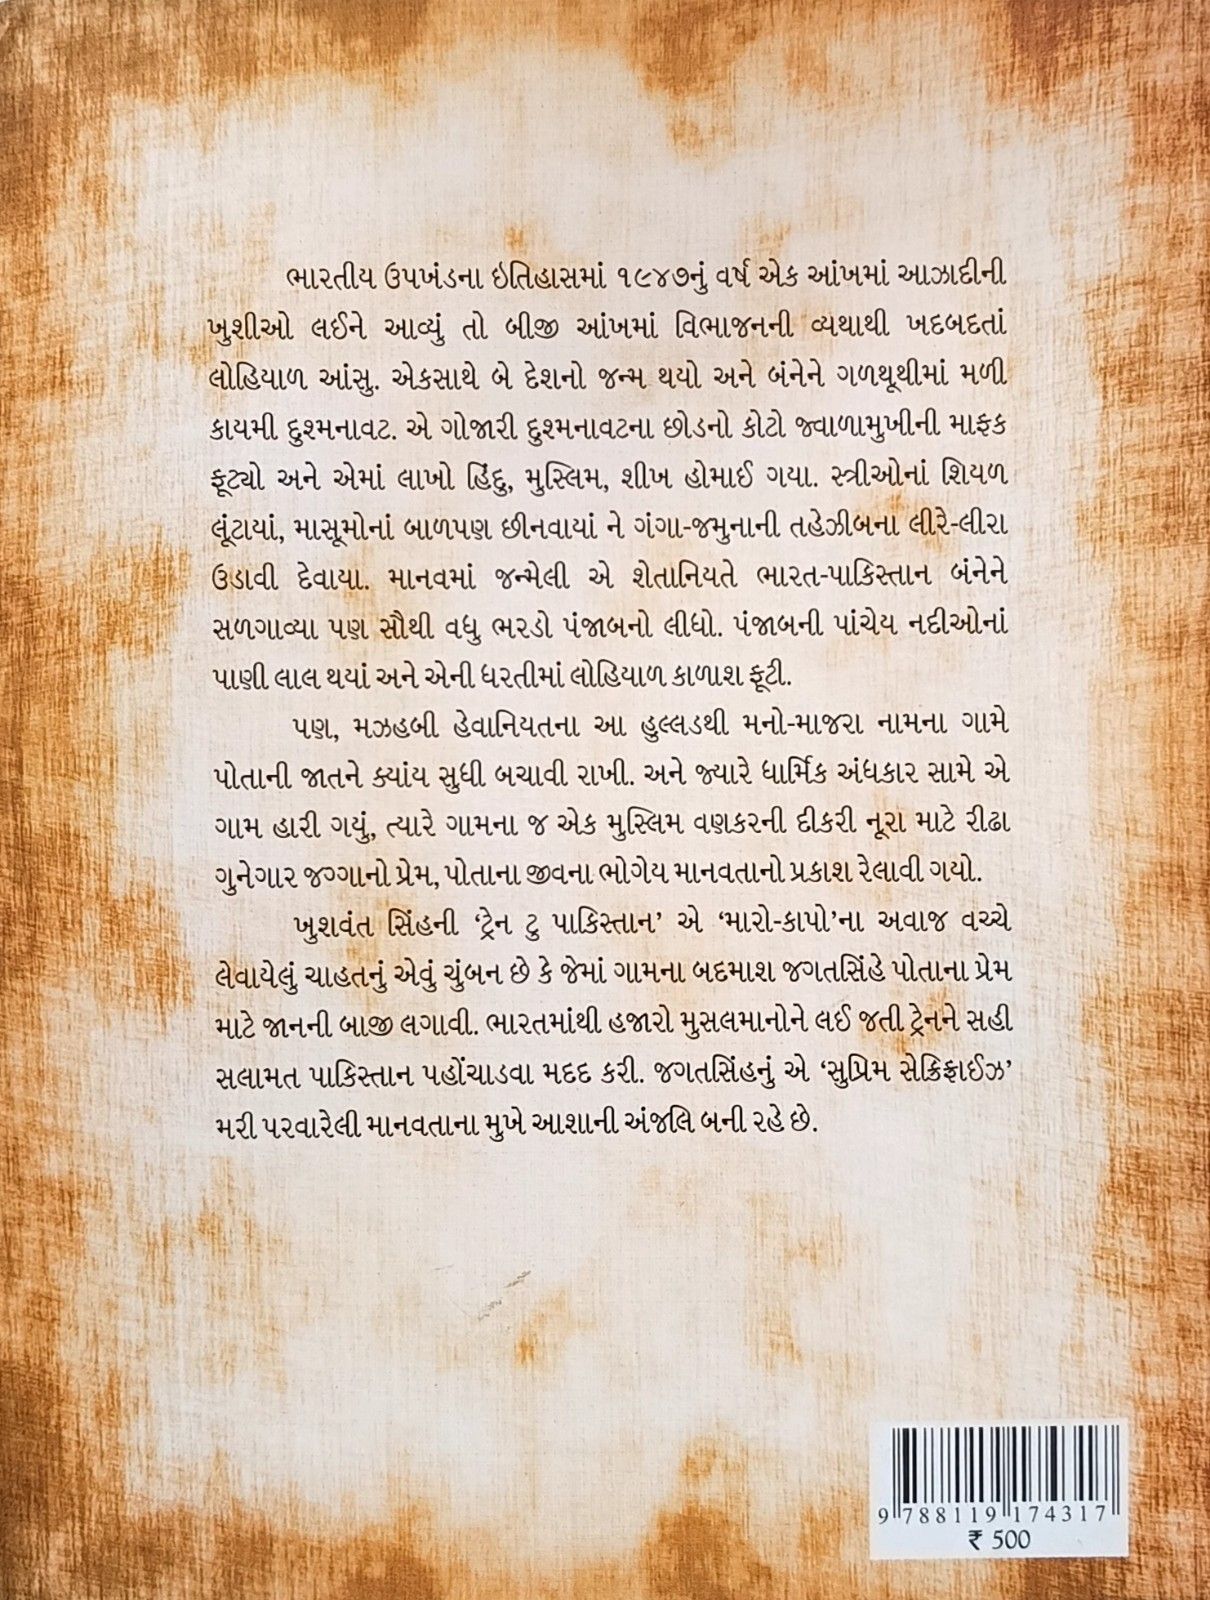 ભારતીય ઉપખંડના ઇતિહાસમાં ૧૯૪૭નું વર્ષ એક આંખમાં આઝાદીની
ખુશીઓ લઈને આવ્યું તો બીજી આંખમાં વિભાજનની વ્યથાથી ખદબદતાં
લોહિયાળ આંસુ. એકસાથે બે દેશનો જન્મ થયો અને બંનેને ગળથૂથીમાં મળી
કાયમી દુશ્મનાવટ. એ ગોજારી દુશ્મનાવટના છોડનો કોટો જ્વાળામુખીની માફક
ફૂટ્યો અને એમાં લાખો હિંદુ, મુસ્લિમ, શીખ હોમાઈ ગયા. સ્ત્રીઓનાં શિયળ
લૂંટાયાં, માસૂમોનાં બાળપણ છીનવાયાં ને ગંગા-જમુનાની તહેઝીબના લીરે-લીરા
ઉડાવી દેવાયા. માનવમાં જન્મેલી એ શેતાનિયતે ભારત-પાકિસ્તાન બંનેને
સળગાવ્યા પણ સૌથી વધુ ભરડો પંજાબનો લીધો. પંજાબની પાંચેય નદીઓનાં
પાણી લાલ થયાં અને એની ધરતીમાં લોહિયાળ કાળાશ ફૂટી.
પણ, મઝહબી હેવાનિયતના આ હુલ્લડથી મનો-માજરા નામના ગામે
પોતાની જાતને ક્યાંય સુધી બચાવી રાખી. અને જ્યારે ધાર્મિક અંધકાર સામે એ
ગામ હારી ગયું, ત્યારે ગામના જ એક મુસ્લિમ વણકરની દીકરી નૂરા માટે રીઢા
ગુનેગાર જગ્ગાનો પ્રેમ, પોતાના જીવના ભોગેય માનવતાનો પ્રકાશ રેલાવી ગયો.
ખુશવંત સિંહની ‘ટ્રેન ટુ પાકિસ્તાન’ એ ‘મારો-કાપો’ના અવાજ વચ્ચે
લેવાયેલું ચાહતનું એવું ચુંબન છે કે જેમાં ગામના બદમાશ જગતસિંહે પોતાના પ્રેમ
માટે જાનની બાજી લગાવી. ભારતમાંથી હજારો મુસલમાનોને લઈ જતી ટ્રેનને સહી
સલામત પાકિસ્તાન પહોંચાડવા મદદ કરી. જગતસિંહનું એ ‘સુપ્રિમ સેક્રિફાઈઝ’
મરી પરવારેલી માનવતાના મુખે આશાની અંજલિ બની રહે છે.
9 788119 174317
₹ 500